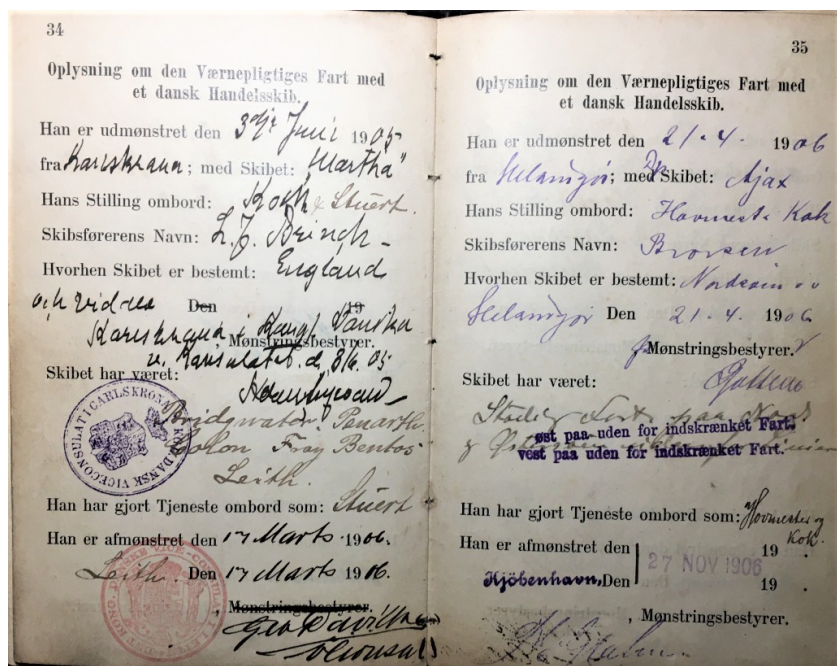 34
Oplysning om den Værnepligtiges Fart med
et dansk Handelsskib.
Han er udmønstret den 3dje Juni 1905
fra Karlskrona; med Skibet: "Martha"
Hans Stilling ombord: Kock & Stuert.
Skibsførerens Navn: L. J. Brinck
Hvorhen Skibet er bestemt: England
och vidare Den 19
Karlskrona i Kongl Danska
, Mønstringsbestyrer.
v. Konsulatet d. 3/6. 05
Skibet har været:
Bridgwater. Penarth.
Colon Fray Bentos
Leith.
DANSK VICECONSULAT I CARLSKRONA
Han har gjort Tjeneste ombord som: Stuert
Han er afmønstret den 17 Marts 1906.
Leith. Den 17 Marts 1906.
, Mønstringsbestyrer.
35
Oplysning om den Værnepligtiges Fart med
et dansk Handelsskib.
Han er udmønstret den 21-4. 1906
fra Helsingør; med Skibet: Ajax
Hans Stilling ombord: Hovmester Kok
Skibsførerens Navn: Brorsen
Hvorhen Skibet er bestemt: Nordsøen
Helsingør Den 21-4. 1906
Mønstringsbestyrer.
Skibet har været:
Stadig Fart paa
øst paa uden for indskrænket Fart.
vest paa uden for indskrænket Fart.
Han har gjort Tjeneste ombord som: Hovmester og
Kok.
Han er afmønstret den 19
27 NOV 1906
Kjöbenhavn, Den 19 .
, Mønstringsbestyrer.